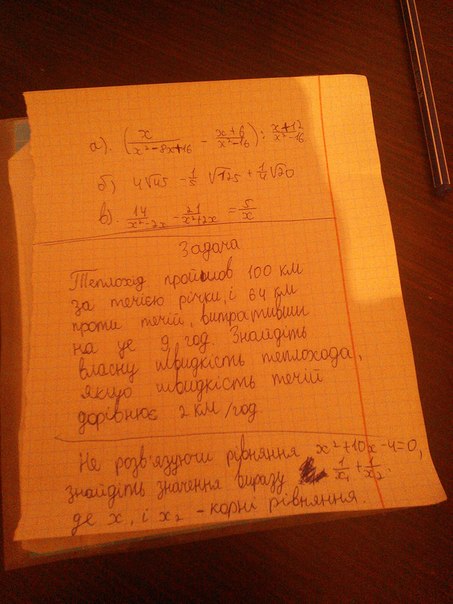 а). (x/(x²-8x+16) - (x+6)/(x²-16)) : (x+12)/(x²-16)
б) 4√45 - 1/5 √125 + 1/4 √20
в). 14/(x²-2x) - 21/(x²+2x) = 5/x
Задача
Теплохід пройшов 100 км
за течією річки, і 64 км
проти течій, витративши
на це 9 год. Знайдіть
власну швидкість теплохода,
якщо швидкість течій
дорівнює 2 км/год
Не розв'язуючи рівняння x²+10x-4=0,
знайдіть значення виразу 1/x₁ + 1/x₂.
де x, і x₂ - корні рівняння.